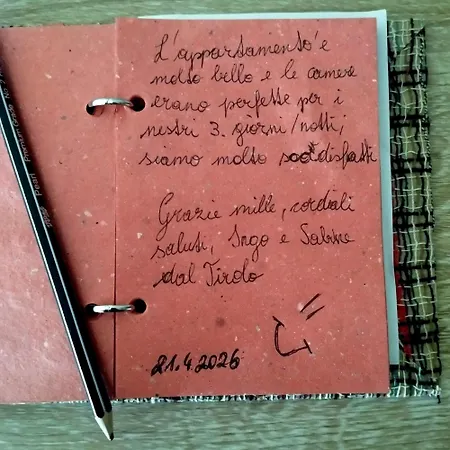 L'appartamento è
molto bello e le camere
erano perfette per i
nestri 3. giorni/notti,
siamo molto soddisfatti
Grazie mille, cordiali
saluti, Ingo e Sabine
dal Tirolo
21.4.2026